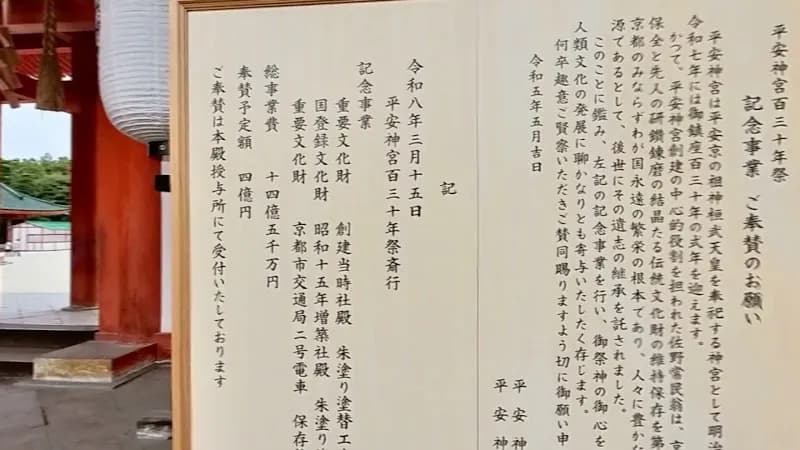 平安神宮百三十年祭
記念事業　ご奉賛のお願い
平安神宮は平安京の祖神桓武天皇を奉祀する神宮として明治
令和七年には御鎮座百三十年の式年を迎えます。
かつて、平安神宮創建の中心的役割を担われた佐野常民翁は、京
保全と先人の研鑽錬磨の結晶たる伝統文化財の維持保存を第
京都のみならずわが国永遠の繁栄の根本であり、人々に豊かな
源であるとして、後世にその遺志の継承を託されました。
このことに鑑み、左記の記念事業を行い、御祭神の御心を
人類文化の発展に聊かなりとも寄与いたしたく存じます。
何卒趣意ご賢察いただきご賛同賜りますよう切に御願い申
令和五年五月吉日
平安神
平安神
記
令和八年三月十五日
平安神宮百三十年祭斎行
記念事業
重要文化財　創建当時社殿　朱塗り塗替工
国登録文化財　昭和十五年増築社殿　朱塗り
重要文化財　京都市交通局二号電車　保存
総事業費　十四億五千万円
奉賛予定額　四億円
ご奉賛は本殿授与所にて受付いたしております